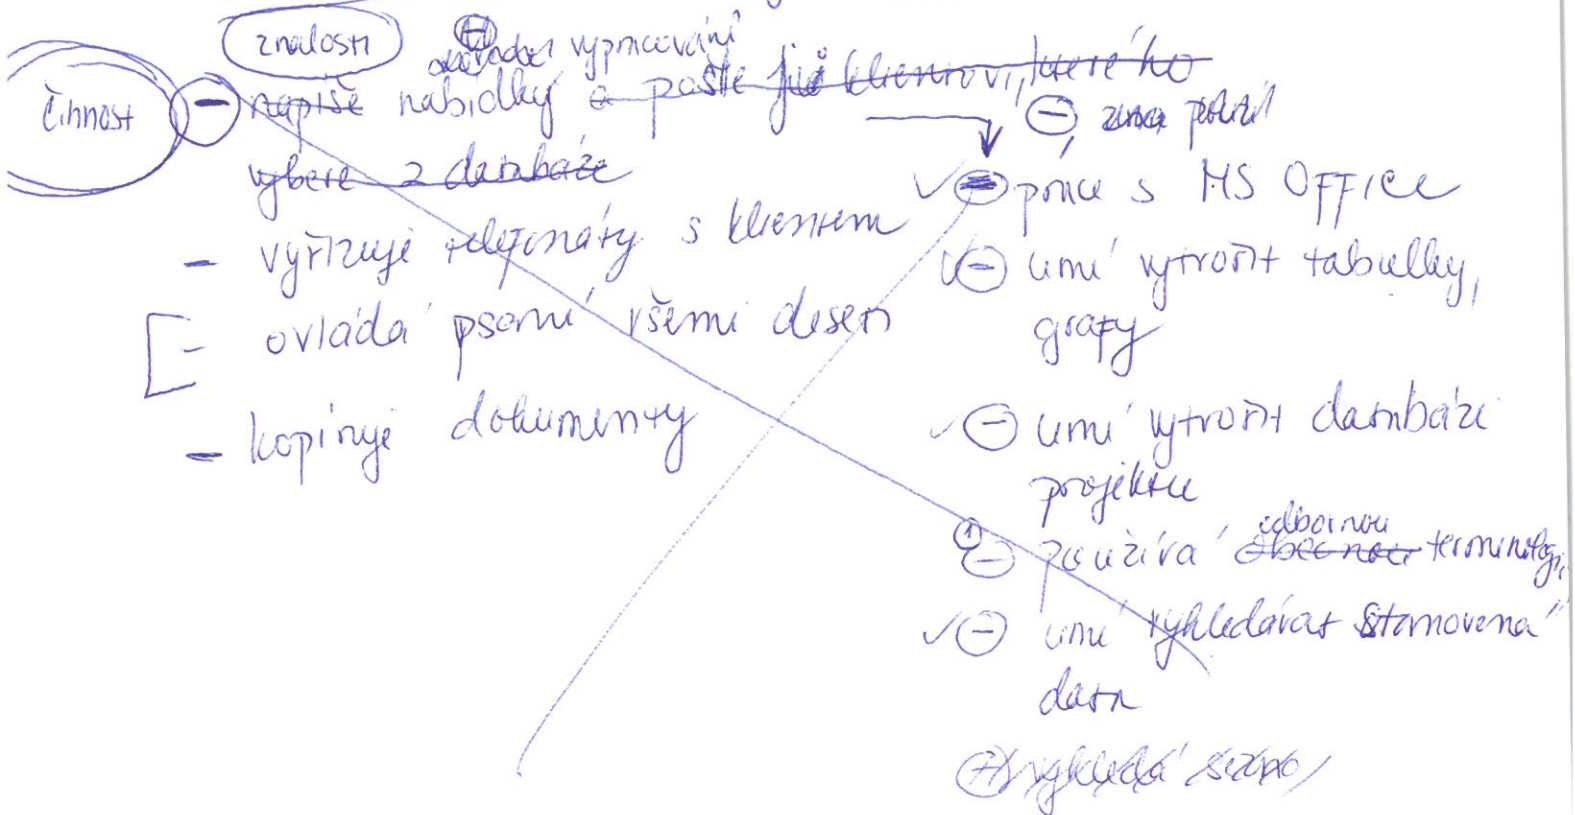 znalosti
činnost
vypracování
– napiše nabídky a pošle klientovi, kterého
vybere z databáze
– vyřizuje telefonáty s klientem
– ovládá psaní všemi deseti
– kopíruje dokumenty
– práce s MS OFFICE
– umí vytvořit tabulky,
grafy
– umí vytvořit databázi
projektu
odbornou
– používá obecnou terminologii
– umí vyhledávat stanovená
data
+ vyhledá